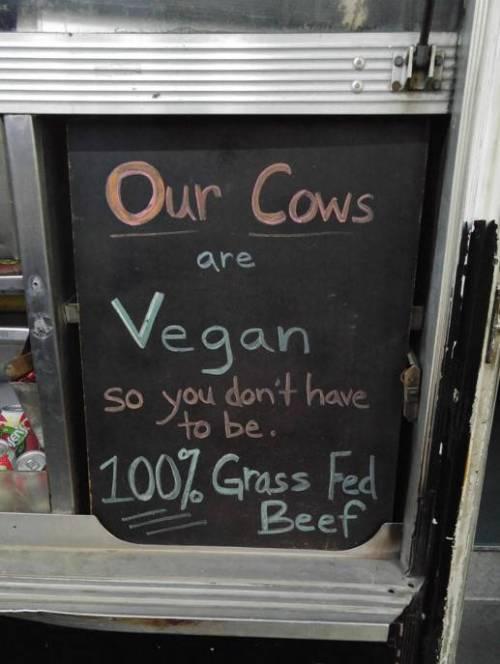 Our Cows
are
Vegan
so you don't have
to be.
100% Grass Fed
Beef